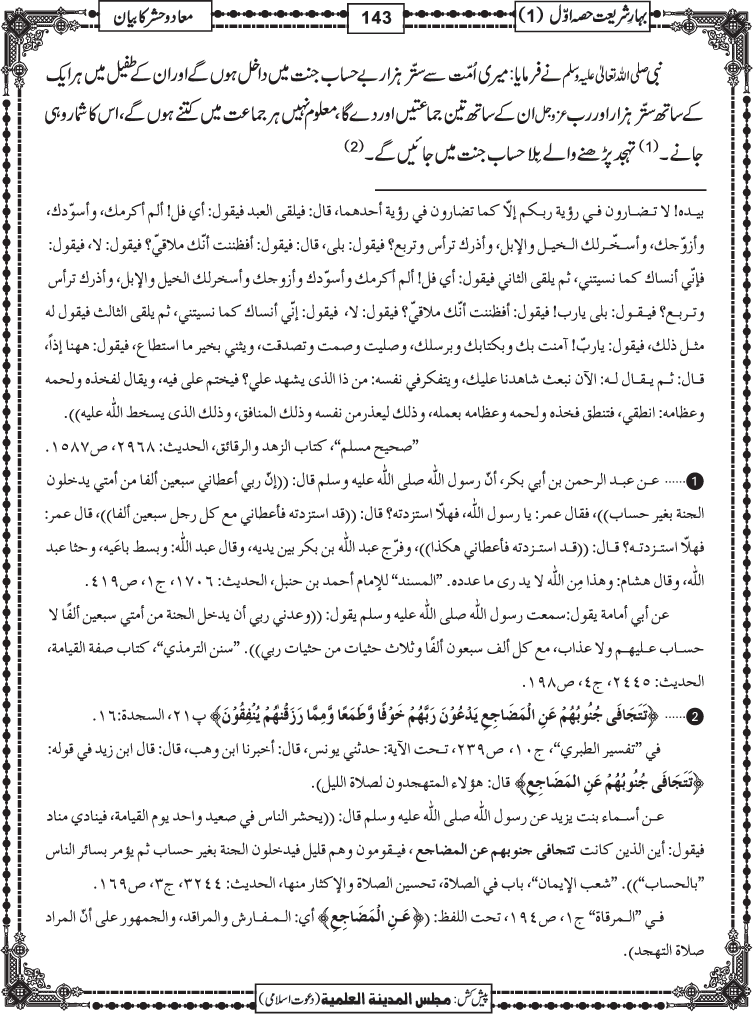 بہارِ شریعت حصہ اوّل (1)
143
معاد و حشر کا بیان
نبی صلی اللہ تعالیٰ علیہ وسلم نے فرمایا: میری اُمّت سے ستّر ہزار بے حساب جنت میں داخل ہوں گے اور ان کے طفیل میں ہر ایک
کے ساتھ ستّر ہزار اور رب عزوجل ان کے ساتھ تین جماعتیں اور دے گا، معلوم نہیں ہر جماعت میں کتنے ہوں گے، اس کا شمار وہی
جانے۔ (1) تہجد پڑھنے والے بِلا حساب جنت میں جائیں گے۔ (2)
بيـده! لا تـضـارون فـي رؤية ربـكم إلاّ كما تضارون في رؤية أحدهما، قال: فيلقى العبد فيقول: أي فل! ألم أكرمك، وأسوّدك،
وأزوّجك، وأسـخّـرلك الـخيـل والإبل، وأذرك ترأس وتربع؟ فيقول: بلى، قال: فيقول: أفظننت أنّك ملاقيّ؟ فيقول: لا، فيقول:
فإنّي أنساك كما نسيتني، ثم يلقى الثاني فيقول: أي فل! ألم أكرمك وأسوّدك وأزوجك وأسخرلك الخيل والإبل، وأذرك ترأس
وتـربـع؟ فيـقـول: بلى يارب! فيقول: أفظننت أنّك ملاقيّ؟ فيقول: لا، فيقول: إنّي أنساك كما نسيتني، ثم يلقى الثالث فيقول له
مثـل ذلك، فيقول: ياربّ! آمنت بك وبكتابك وبرسلك، وصليت وصمت وتصدقت، ويثني بخير ما استطاع، فيقول: ههنا إذاً،
قـال: ثـم يـقـال لـه: الآن نبعث شاهدنا عليك، ويتفكرفي نفسه: من ذا الذى يشهد علي؟ فيختم على فيه، ويقال لفخذه ولحمه
وعظامه: انطقي، فتنطق فخذه ولحمه وعظامه بعمله، وذلك ليعذرمن نفسه وذلك المنافق، وذلك الذى يسخط الله عليه)).
”صحيح مسلم“، كتاب الزهد والرقائق، الحديث: ٢٩٦٨، ص١٥٨٧.
1 ...... عـن عبـد الرحمن بن أبي بكر، أنّ رسول الله صلى الله عليه وسلم قال: ((إنّ ربي أعطاني سبعين ألفا من أمتي يدخلون
الجنة بغير حساب))، فقال عمر: يا رسول الله، فهلّا استزدته؟ قال: ((قد استزدته فأعطاني مع كل رجل سبعين ألفا))، قال عمر:
فهلّا استـزدتـه؟ قـال: ((قـد استـزدته فأعطاني هكذا))، وفرّج عبد الله بن بكر بين يديه، وقال عبد الله: وبسط باعَيه، وحثا عبد
الله، وقال هشام: وهذا مِن الله لا يد رى ما عدده. ”المسند“ للإمام أحمد بن حنبل، الحديث: ١٧٠٦، ج١، ص٤١٩.
عن أبي أمامة يقول:سمعت رسول الله صلى الله عليه وسلم يقول: ((وعدني ربي أن يدخل الجنة من أمتي سبعين ألفًا لا
حساب عـليهـم ولا عذاب، مع كل ألف سبعون ألفًا وثلاث حثيات من حثيات ربي)). ”سنن الترمذي“، كتاب صفة القيامة،
الحديث: ٢٤٤٥، ج٤، ص١٩٨.
2 ...... ﴿تَتَجَافٰى جُنُوبُهُمْ عَنِ الْمَضَاجِعِ يَدْعُوْنَ رَبَّهُمْ خَوْفًا وَّطَمَعًا وَّمِمَّا رَزَقْنٰهُمْ يُنْفِقُوْنَ﴾ پ٢١، السجدة:١٦.
في ”تفسير الطبري“، ج١٠، ص٢٣٩، تـحت الآية: حدثني يونس، قال: أخبرنا ابن وهب، قال: قال ابن زيد في قوله:
﴿تَتَجَافٰى جُنُوبُهُمْ عَنِ الْمَضَاجِعِ﴾ قال: هؤلاء المتهجدون لصلاة الليل).
عـن أسـماء بنت يزيد عن رسول الله صلى الله عليه وسلم قال: ((يحشر الناس في صعيد واحد يوم القيامة، فينادي مناد
فيقول: أين الذين كانت تتجافى جنوبهم عن المضاجع، فيـقومون وهم قليل فيدخلون الجنة بغير حساب ثم يؤمر بسائر الناس
”بالحساب“)). ”شعب الإيمان“، باب في الصلاة، تحسين الصلاة والإكثار منها، الحديث: ٣٢٤٤، ج٣، ص١٦٩.
فـي ”الـمرقاة“ ج١، ص١٩٤، تحت اللفظ: (﴿عَنِ الْمَضَاجِعِ﴾ أي: الـمـفـارش والمراقد، والجمهور على أنّ المراد
صلاة التهجد).
پیش کش: مجلس المدينة العلمية (دعوتِ اسلامی)